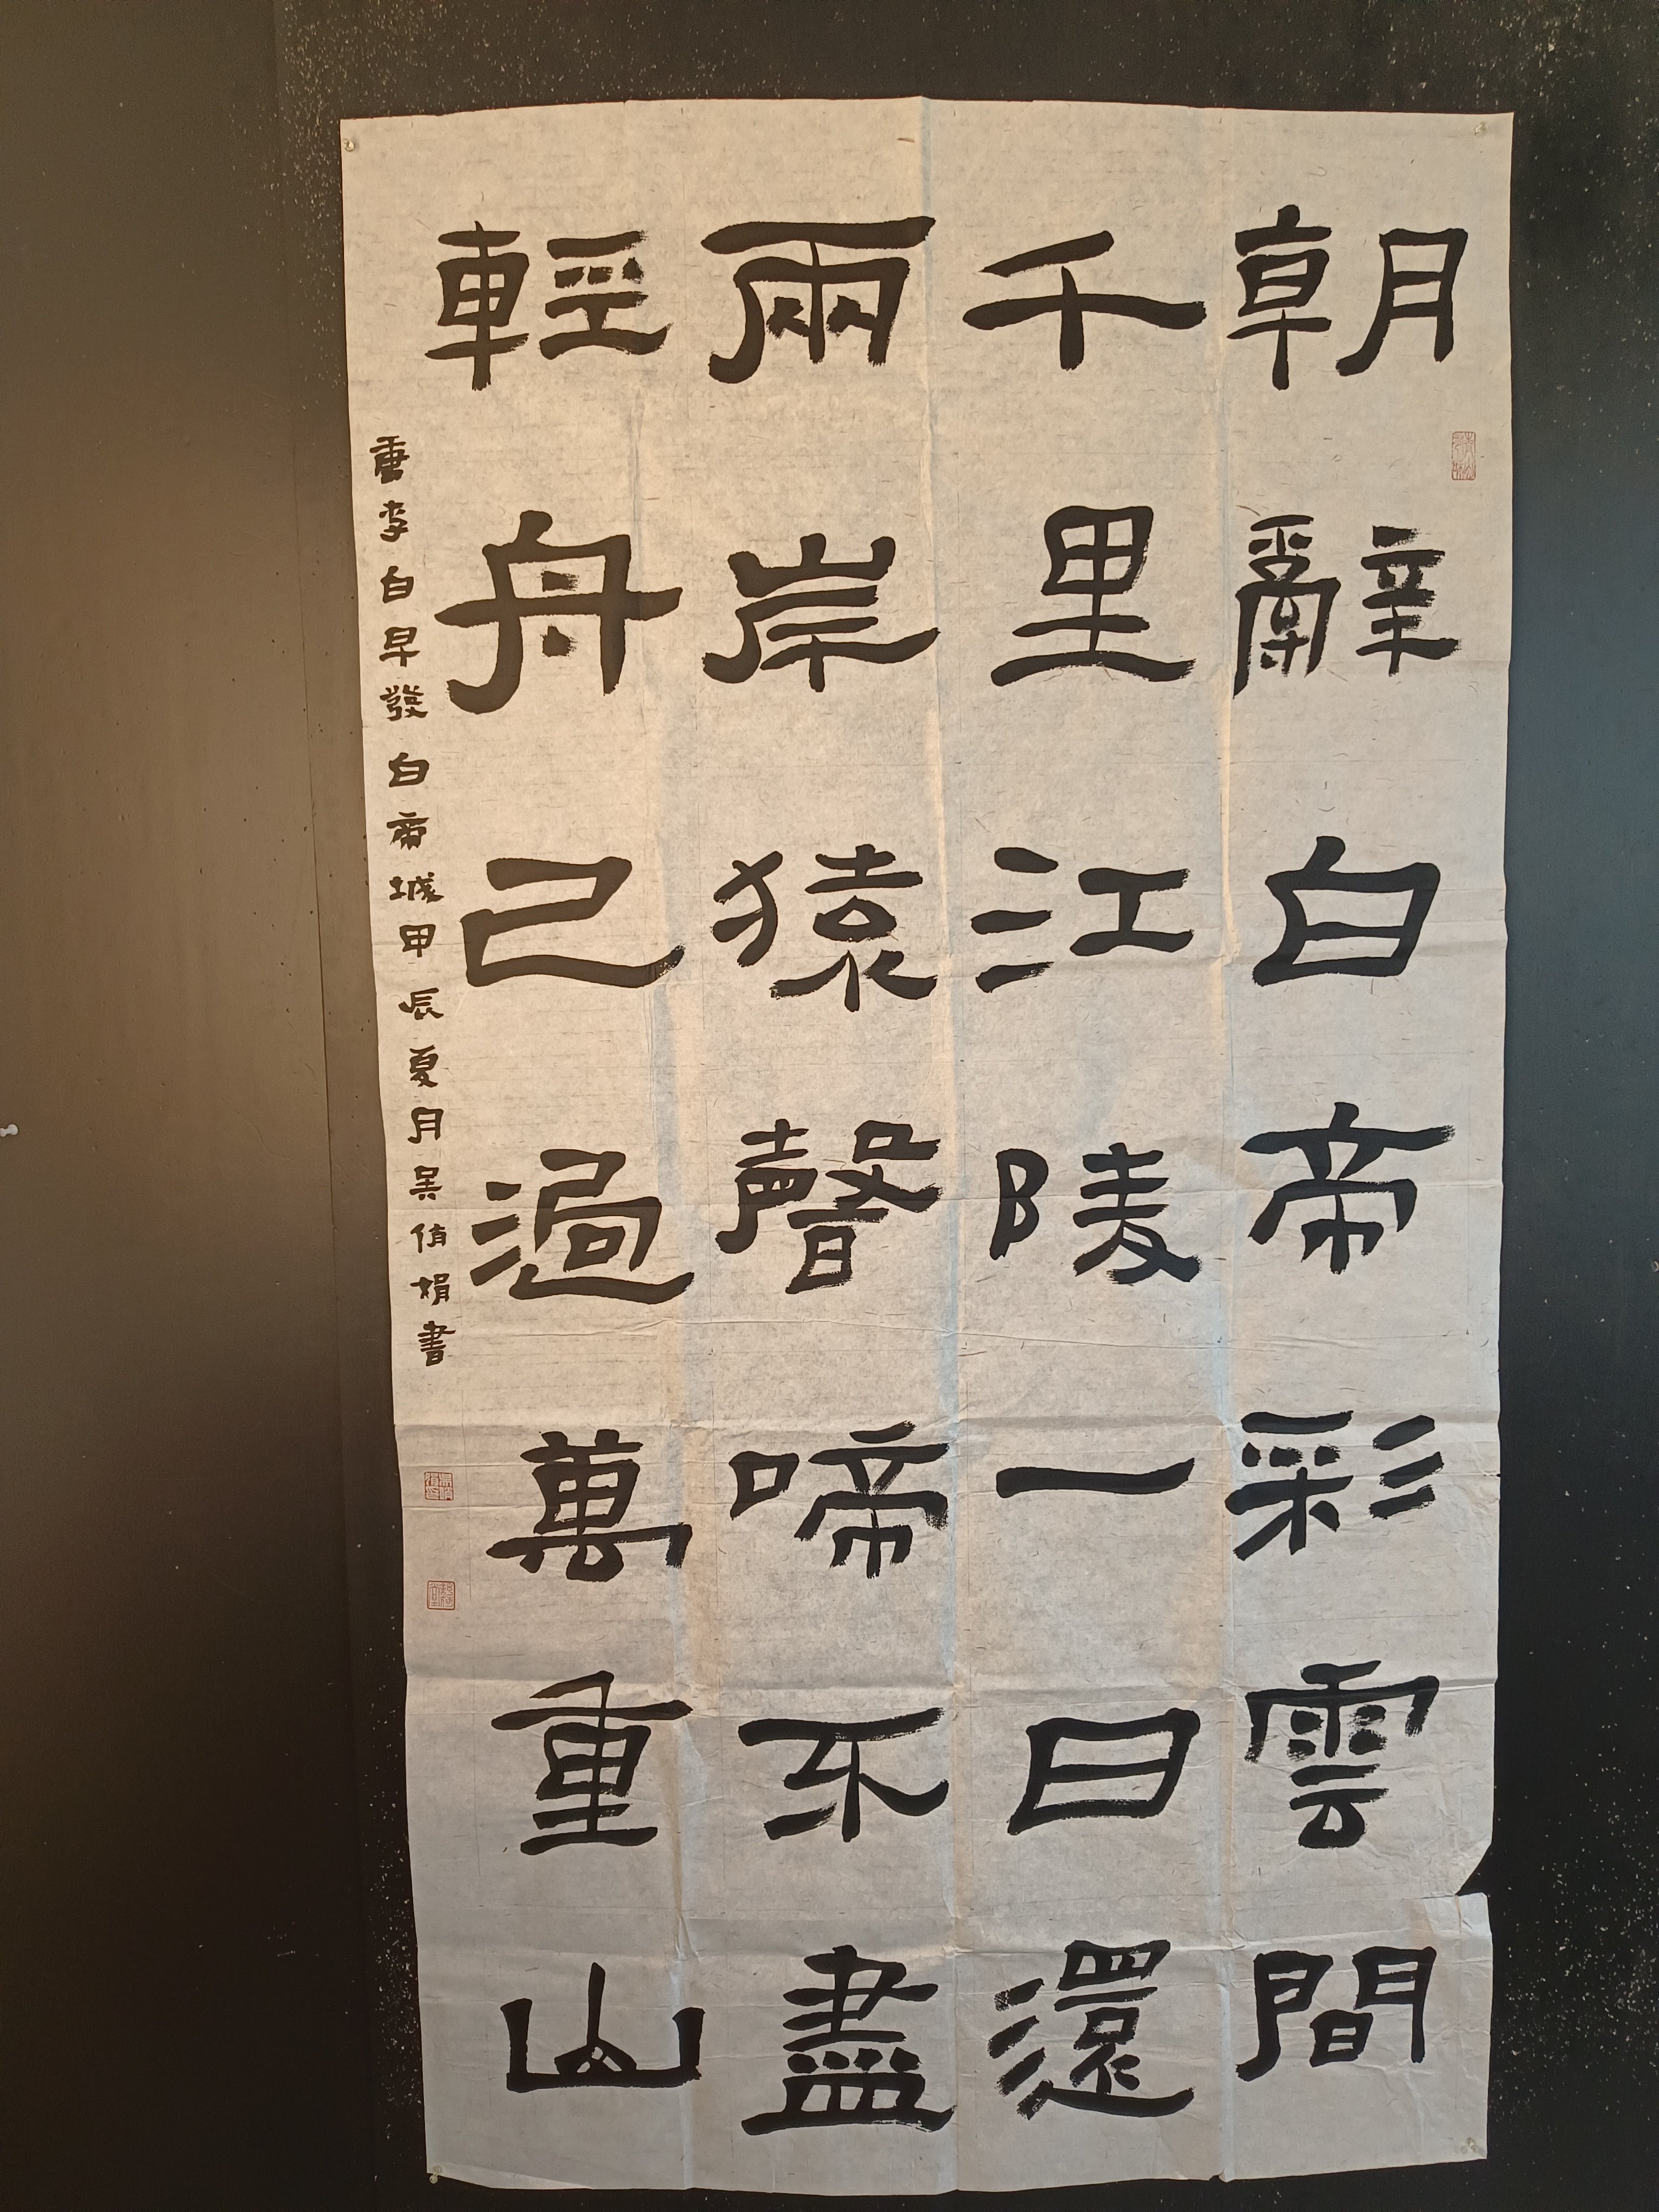 朝辭白帝彩雲間
千里江陵一日還
兩岸猿聲啼不盡
輕舟已過萬重山
唐李白早發白帝城甲辰夏月吴俏娟書